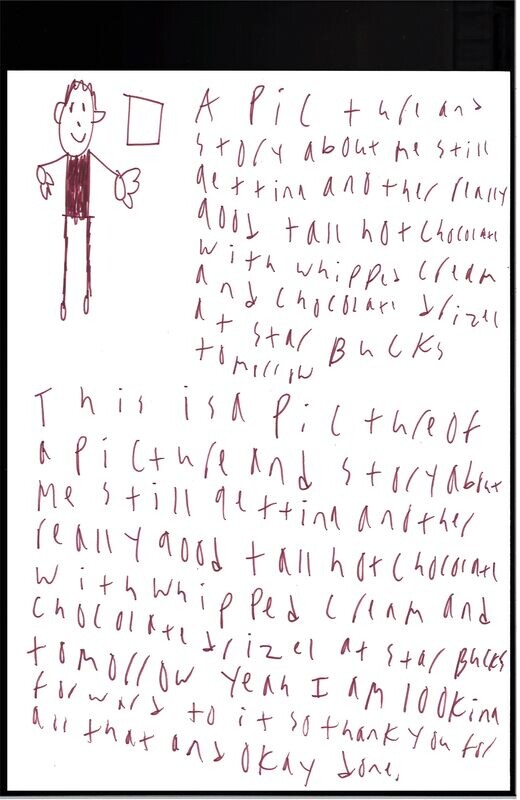 A Picture and
story about me still
getting another really
good tall hot chocolate
with whipped cream
and chocolate drizel
at Star Bucks
tomorrow
This is a picture of
a picture and story about
me still getting another
really good tall hot chocolate
with whipped cream and
chocolate drizel at Star Bucks
tomorrow yeah I am looking
forward to it so thank you for
all that and okay done.